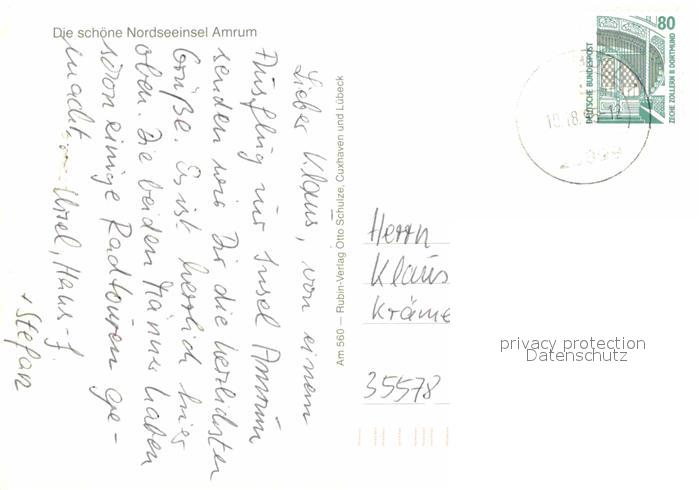 Die schöne Nordseeinsel Amrum
Lieber Klaus, von einem
Ausflug zur Insel Amrum
senden wir Dir die herzlichsten
Grüße. Es ist herrlich hier
oben. Die beiden Männer haben
schon einige Radtouren ge-
macht. Ursel, Hans-J.
+ Stefan
Am 560 — Rubin-Verlag Otto Schulze, Cuxhaven und Lübeck
80
DEUTSCHE BUNDESPOST
ZECHE ZOLLERN II DORTMUND
Herrn
Klaus
Kräme
35578
privacy protection
Datenschutz